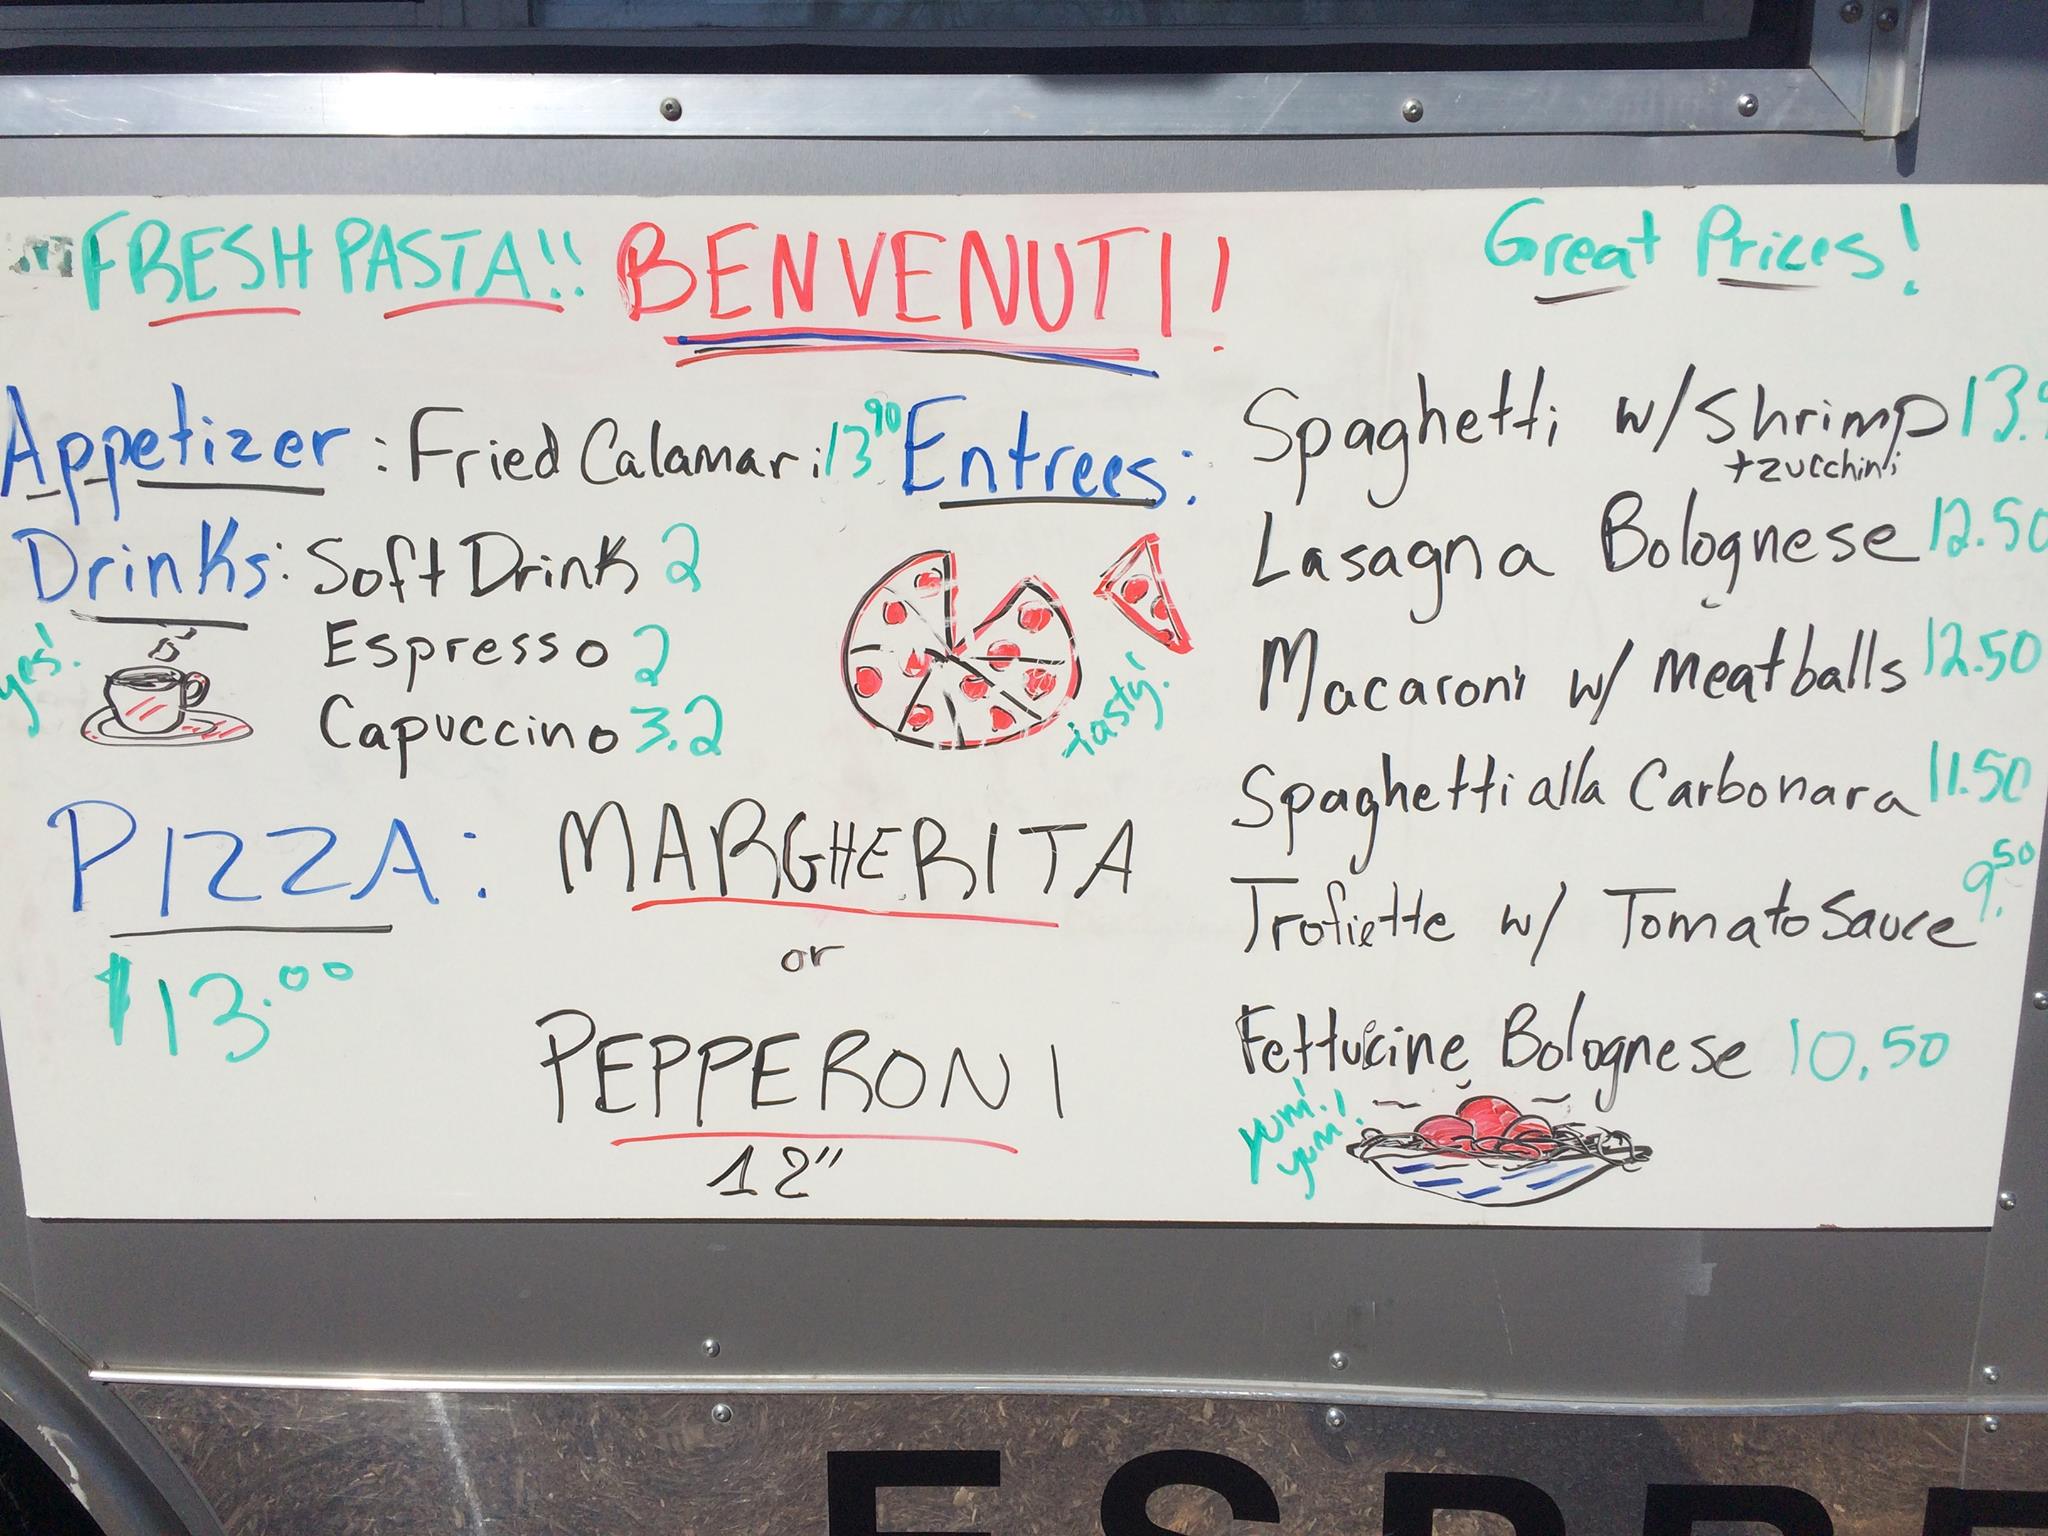 FRESH PASTA!! BENVENUTI! Great Prices!
Appetizer: Fried Calamari 13 90
Drinks: Soft Drink 2
Espresso 2
Capuccino 3.2
yes!
PIZZA: MARGHERITA
$13.00
or
PEPPERONI
12"
tasty!
Entrees: Spaghetti w/ Shrimp
+zucchini
Lasagna Bolognese 12.50
Macaroni w/ Meatballs 12.50
Spaghetti alla Carbonara 11.50
Trofiette w/ Tomato Sauce 9.50
Fettucine Bolognese 10.50
yum!
yum!